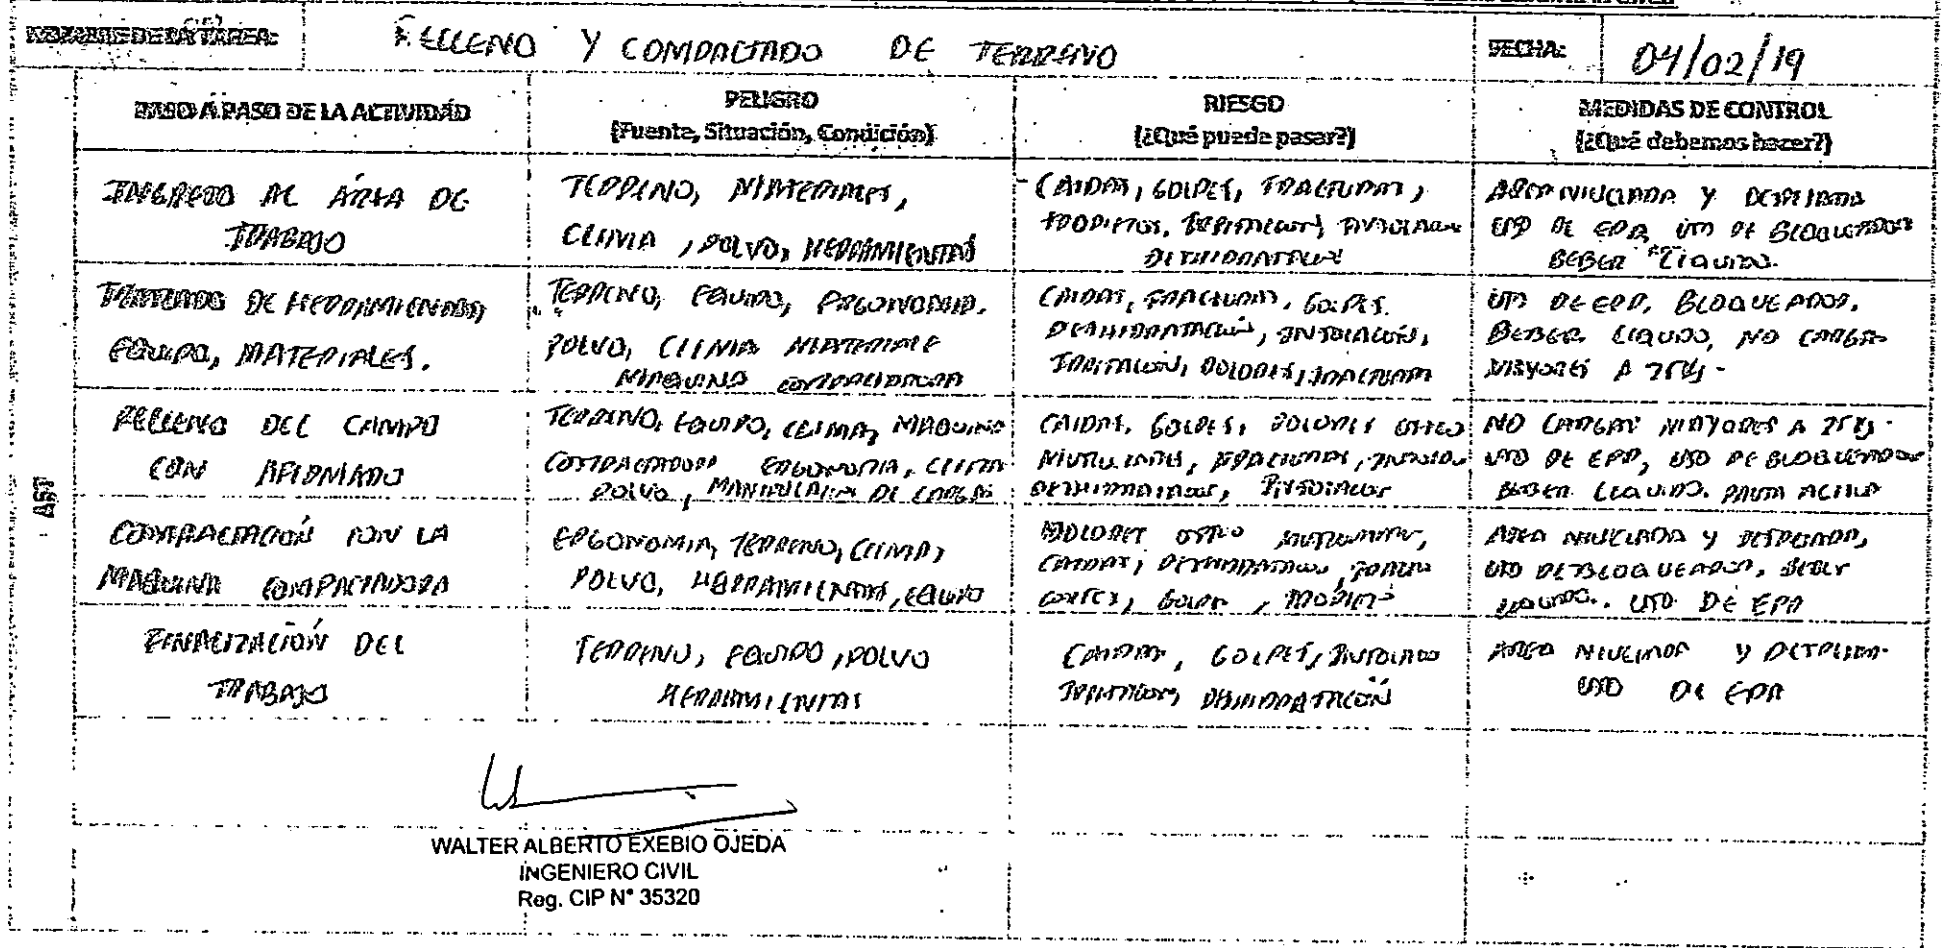 NOMBRE DE LA TAREA: RELLENO Y COMPACTADO DE TERRENO FECHA: 04/02/19
PASO A PASO DE LA ACTIVIDAD
PELIGRO
(Fuente, Situación, Condición)
RIESGO
(¿Qué puede pasar?)
MEDIDAS DE CONTROL
(¿Qué debemos hacer?)
AST
INGRESO AL ÁREA DE
TRABAJO
TERRENO, MATERIALES,
CLIMA, POLVO, HERRAMIENTAS
CAIDAS, GOLPES, FRACTURAS,
TROPIEZOS,
AREA NIVELADA Y DESPEJADA
USO DE EPP, USO DE BLOQUEADOR
BEBER LIQUIDO.
TRASLADO DE HERRAMIENTAS,
EQUIPO, MATERIALES.
TERRENO, EQUIPO,
POLVO, CLIMA MATERIALE
MAQUINA COMPACTADORA
CAIDAS, FRACTURAS, GOLPES.
DESHIDRATACIÓN, INSOLACIÓN,
IRRITACIÓN, DOLORES, FRACTURAS
USO DE EPP, BLOQUEADOR.
BEBER LIQUIDO, NO CARGAR
MAYORES A 25Kg.
RELLENO DEL CAMPO
CON AFIRMADO
TERRENO, EQUIPO, CLIMA, MAQUINA
COMPACTADORA ERGONOMIA, CLIMA
POLVO, MANIPULACIÓN DE CARGAS
CAIDAS, GOLPES, DOLORES OSTEO
FRACTURAS,
NO CARGAR MAYORES A 25Kg.
USO DE EPP, USO DE BLOQUEADOR
BEBER LIQUIDO. PAUSA ACTIVA
COMPACTACIÓN CON LA
MAQUINA COMPACTADORA
ERGONOMIA, TERRENO, CLIMA,
POLVO, HERRAMIENTAS, EQUIPO
DOLORES OSTEO
CAIDAS,
CORTES, GOLPES,
AREA NIVELADA Y DESPEJADA,
USO DE BLOQUEADOR, BEBER
LIQUIDO. USO DE EPP
FINALIZACIÓN DEL
TRABAJO
TERRENO, EQUIPO, POLVO
HERRAMIENTAS
CAIDAS, GOLPES,
DESHIDRATACIÓN
AREA NIVELADA Y
USO DE EPP
WALTER ALBERTO EXEBIO OJEDA
INGENIERO CIVIL
Reg. CIP N° 35320